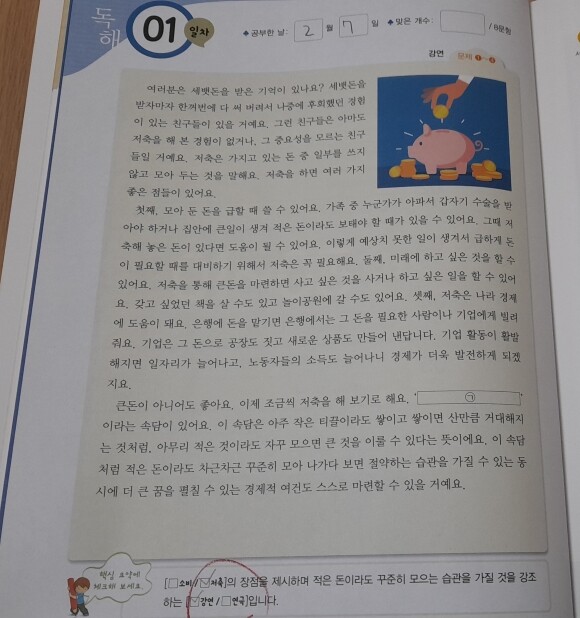 독해
01 일차
♣ 공부한 날: 2 월 7 일 ♣ 맞은 개수: / 8문항
강연 문제 1~2
여러분은 세뱃돈을 받은 기억이 있나요? 세뱃돈을
받자마자 한꺼번에 다 써 버려서 나중에 후회했던 경험
이 있는 친구들이 있을 거예요. 그런 친구들은 아마도
저축을 해 본 경험이 없거나, 그 중요성을 모르는 친구
들일 거예요. 저축은 가지고 있는 돈 중 일부를 쓰지
않고 모아 두는 것을 말해요. 저축을 하면 여러 가지
좋은 점들이 있어요.
첫째, 모아 둔 돈을 급할 때 쓸 수 있어요. 가족 중 누군가가 아파서 갑자기 수술을 받
아야 하거나 집안에 큰일이 생겨 적은 돈이라도 보태야 할 때가 있을 수 있어요. 그때 저
축해 놓은 돈이 있다면 도움이 될 수 있어요. 이렇게 예상치 못한 일이 생겨서 급하게 돈
이 필요할 때를 대비하기 위해서 저축은 꼭 필요해요. 둘째, 미래에 하고 싶은 것을 할 수
있어요. 저축을 통해 큰돈을 마련하면 사고 싶은 것을 사거나 하고 싶은 일을 할 수 있어
요. 갖고 싶었던 책을 살 수도 있고 놀이공원에 갈 수도 있어요. 셋째, 저축은 나라 경제
에 도움이 돼요. 은행에 돈을 맡기면 은행에서는 그 돈을 필요한 사람이나 기업에게 빌려
줘요. 기업은 그 돈으로 공장도 짓고 새로운 상품도 만들어 낸답니다. 기업 활동이 활발
해지면 일자리가 늘어나고, 노동자들의 소득도 늘어나니 경제가 더욱 발전하게 되겠
지요.
큰돈이 아니어도 좋아요. 이제 조금씩 저축을 해 보기로 해요. '㉠'
이라는 속담이 있어요. 이 속담은 아주 작은 티끌이라도 쌓이고 쌓이면 산만큼 거대해지
는 것처럼, 아무리 적은 것이라도 자꾸 모으면 큰 것을 이룰 수 있다는 뜻이에요. 이 속담
처럼 적은 돈이라도 차근차근 꾸준히 모아 나가다 보면 절약하는 습관을 가질 수 있는 동
시에 더 큰 꿈을 펼칠 수 있는 경제적 여건도 스스로 마련할 수 있을 거예요.
핵심 요약에
체크해 보세요.
[□소비 / ☑저축]의 장점을 제시하며 적은 돈이라도 꾸준히 모으는 습관을 가질 것을 강조
하는 [☑강연 / □연극]입니다.